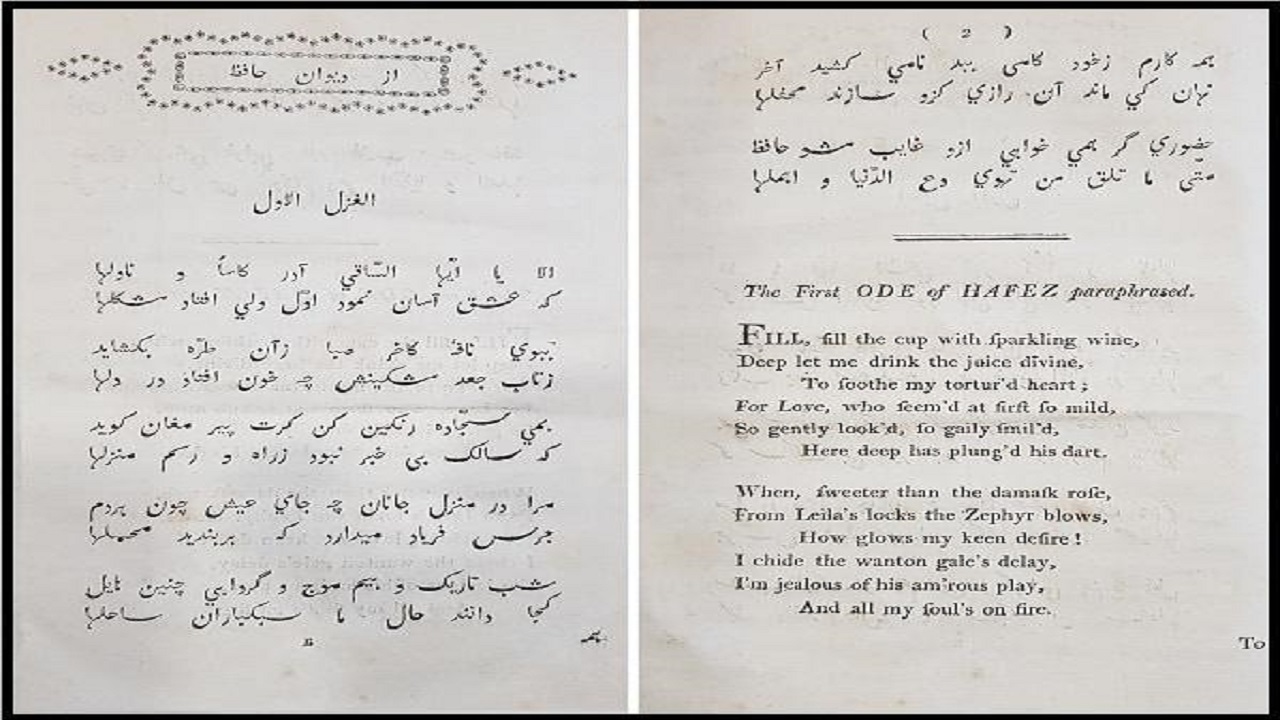 از ديوان حافظ
الغزل الاول
الا يا ايّها السّاقي آدر كاساً و ناولها
كه عشق آسان نمود اوّل ولي افتاد مشكلها
ببوي نافه كاخر صبا زآن طرّه بكشايد
زتاب جعد مشكينش چه خون افتاد در دلها
بمي سجّاده رنكين كن كرت پير مغان كويد
كه سالك بي خبر نبود زراه و رسم منزلها
مرا در منزل جانان چه جاي عيش چون هردم
جرس فرياد ميدارد كه بربنديد محملها
شب تاريك و بيم موج و گردابي چنين هايل
كجا دانند حال ما سبكباران ساحلها
B همه
( 2 )
همه كارم زخود كامي ببد نامي كشيد آخر
نهان كي ماند آن رازي كزو سازند محفلها
حضوري گر همي خواهي ازو غايب مشو حافظ
متّي ما تلق من تهوي دع الدّنيا و اهملها
The First ODE of HAFEZ paraphrased.
FILL, fill the cup with ſparkling wine,
Deep let me drink the juice divine,
To ſoothe my tortur'd heart;
For Love, who ſeem'd at firſt ſo mild,
So gently look'd, ſo gaily ſmil'd,
Here deep has plung'd his dart.
When, ſweeter than the damaſk roſe,
From Leila's locks the Zephyr blows,
How glows my keen deſire!
I chide the wanton gale's delay,
I'm jealous of his am'rous play,
And all my ſoul's on fire.
To